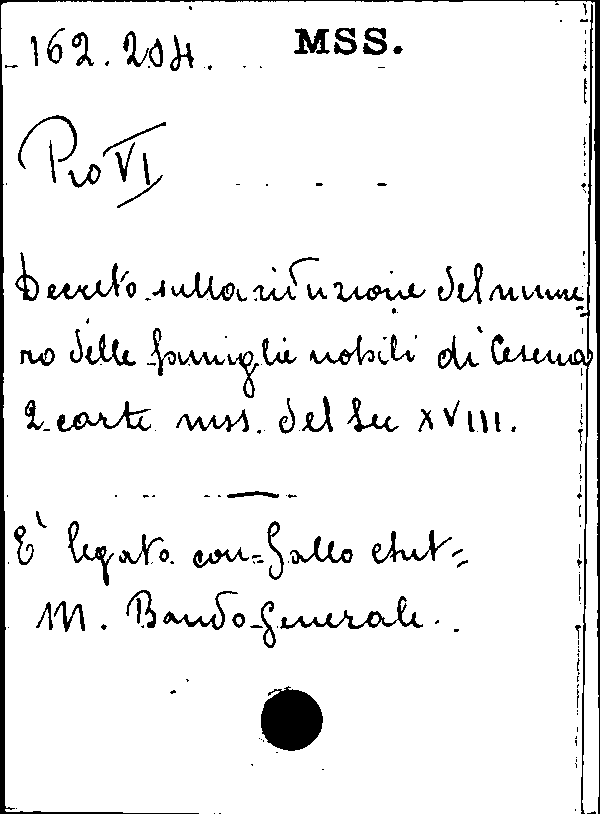 162.204. MSS.
Pio VI
Decreto sulla riduzione del nume
ro delle famiglie nobili di Cesena
2 carte mss. del Sec XVIII.
E' legato con= Gallo
M. Bando Generale.